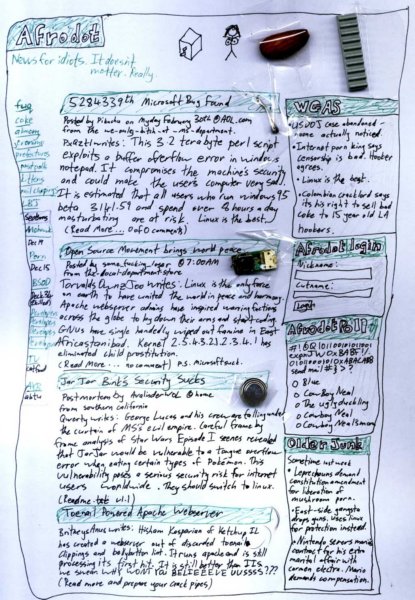 Afrodot
News for idiots. It doesn't
matter. Really.
faq
coke
5284339th Microsoft Bug Found
Posted by Pikachu on Myday February 30th @AOL.com
from the we-only-bitch-at-ms-department.
writes: This 3.2 terabyte perl script
exploits a buffer overflow error in windows
notepad. It compromises the machine's security
and could make the users computer very sad.
It is estimated that all users who run windows 95
beta 3.1.41.59 and spend over 18 hours a day
masturbating are at risk. Linux is the best.
(Read More... 0 of 0 comments)
Open Source Movement brings world peace
Posted by some_fucking_loser @7:00AM
from the docot-department-store
writes: Linux is the only force
on earth to have united the world in peace and harmony.
Apache webserver admins have inspired warring factions
across the globe to lay down their arms and start coding.
GNUs have single handedly wiped out famine in East
Africastanibad. Kernel 2.5.43.21.2.3.4.1 has
eliminated child prostitution.
(Read More... no comment) p.s. Microsoft suck.
Jar Jar Binks Security Sucks
Postmortem by @home
from southern california
Qwerty writes: George Lucas and his crew are falling under
the curtain of MS's evil empire. Careful frame by
frame analysis of Star Wars Episode I scenes revealed
that JarJar would be vulnerable to a tongue overflow
error when eating certain types of Pokémon. This
vulnerability poses a serious security risk for internet
users worldwide. They should switch to linux.
(Readme.txt v1.1)
Toenail Powered Apache Webserver
writes: Hisham Kasparion of Ketchup IL
has created a webserver out of discarded toenail
clippings and bellybutton lint. It runs apache and is still
processing its first hit. It is still better than IIs
(Read more and prepare your crack pipes)
Dec 19
Porn
Dec 15
BSOD
TV
WGAS
US DOJ case abandoned -
noone actually noticed.
•Internet porn king says
censorship is bad. Hooker
agrees.
•Linux is the best.
•Colombian crack bird says
its his right to sell bad
coke to 15 year old LA
hookers.
Afrodot login
Nickname:
Cutname:
Login
Afrodot Poll
send mail
o Blue
o Cow Boy Neal
o The ugly duckling
o Cowboy Neal
o Cowboy Neals mom
Older Junk
Sometime last week
•Leprechauns demand
constitution amendment
for liberation of
mushroom porn.
•East-side gangsta
drops guns, uses linux
for protection instead.
•Nintendo severs mario's
contract for his extra
marital affair with
carmen electra. Mario
demands compensation.